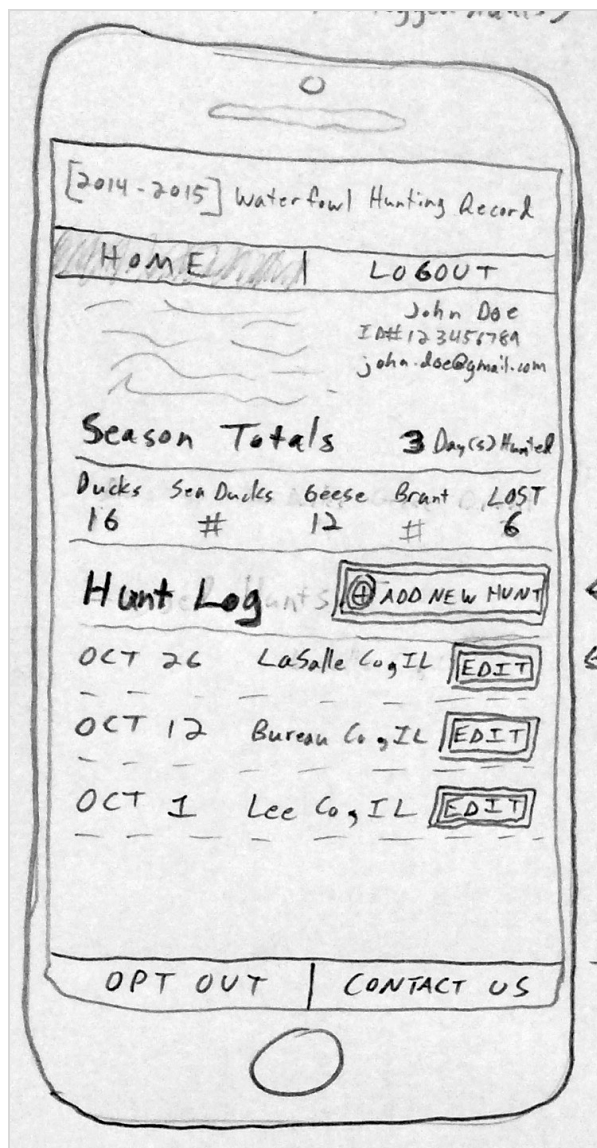 [2014-2015] Waterfowl Hunting Record
HOME LOGOUT
John Doe
ID#123456789
john.doe@gmail.com
Season Totals 3 Day(s) Hunted
Ducks Sea Ducks Geese Brant LOST
16 # 12 # 6
Hunt Log ⊕ ADD NEW HUNT
OCT 26 LaSalle Co, IL EDIT
OCT 12 Bureau Co, IL EDIT
OCT 1 Lee Co, IL EDIT
OPT OUT CONTACT US